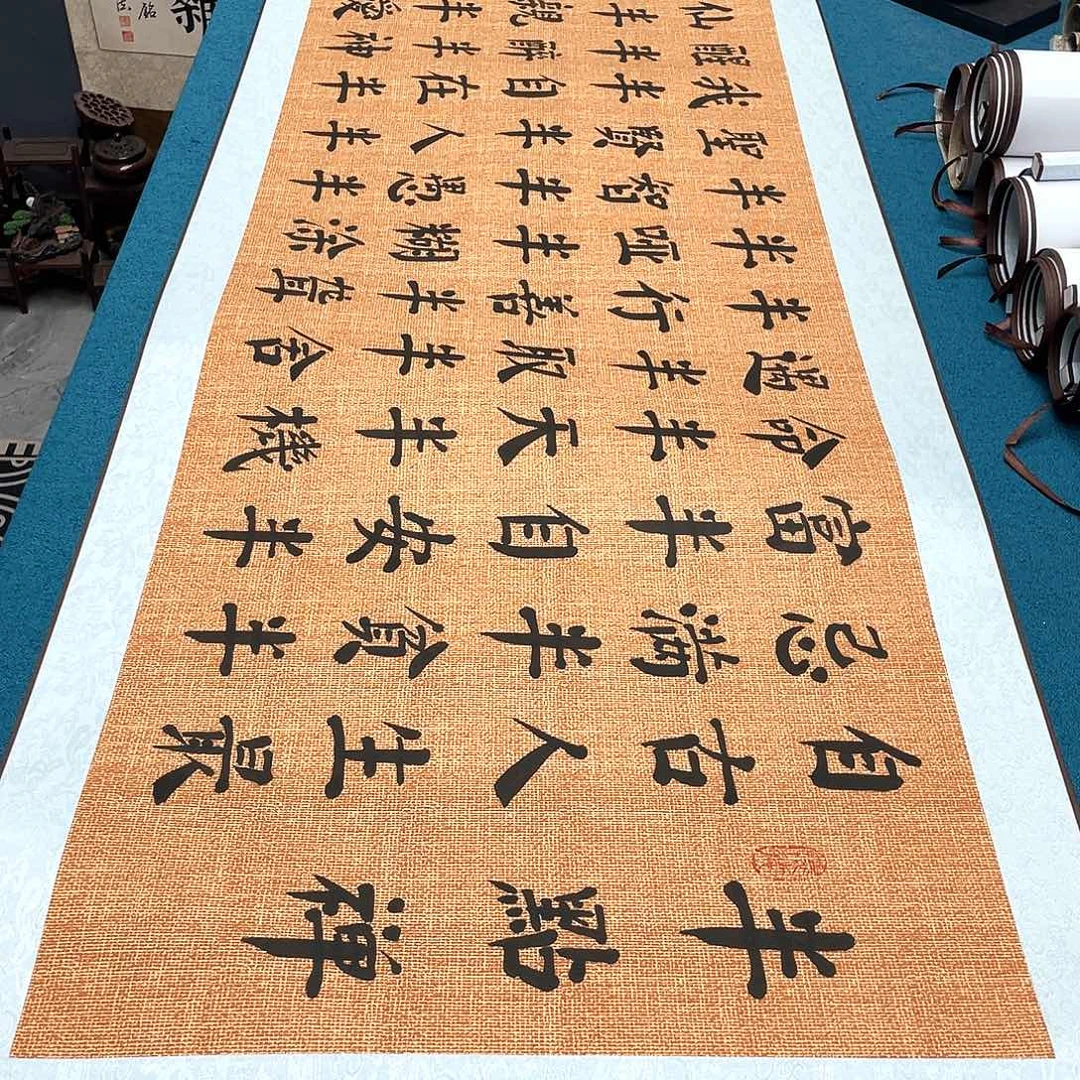 半點禪
自古人生最
忌滿半貧半
富半自安半
命半天半機
遇半取半舍
半行善半聾
半啞半糊涂
半智半愚半
聖賢半人半
我半自在半
醒半醉半神
仙半親半愛
銘